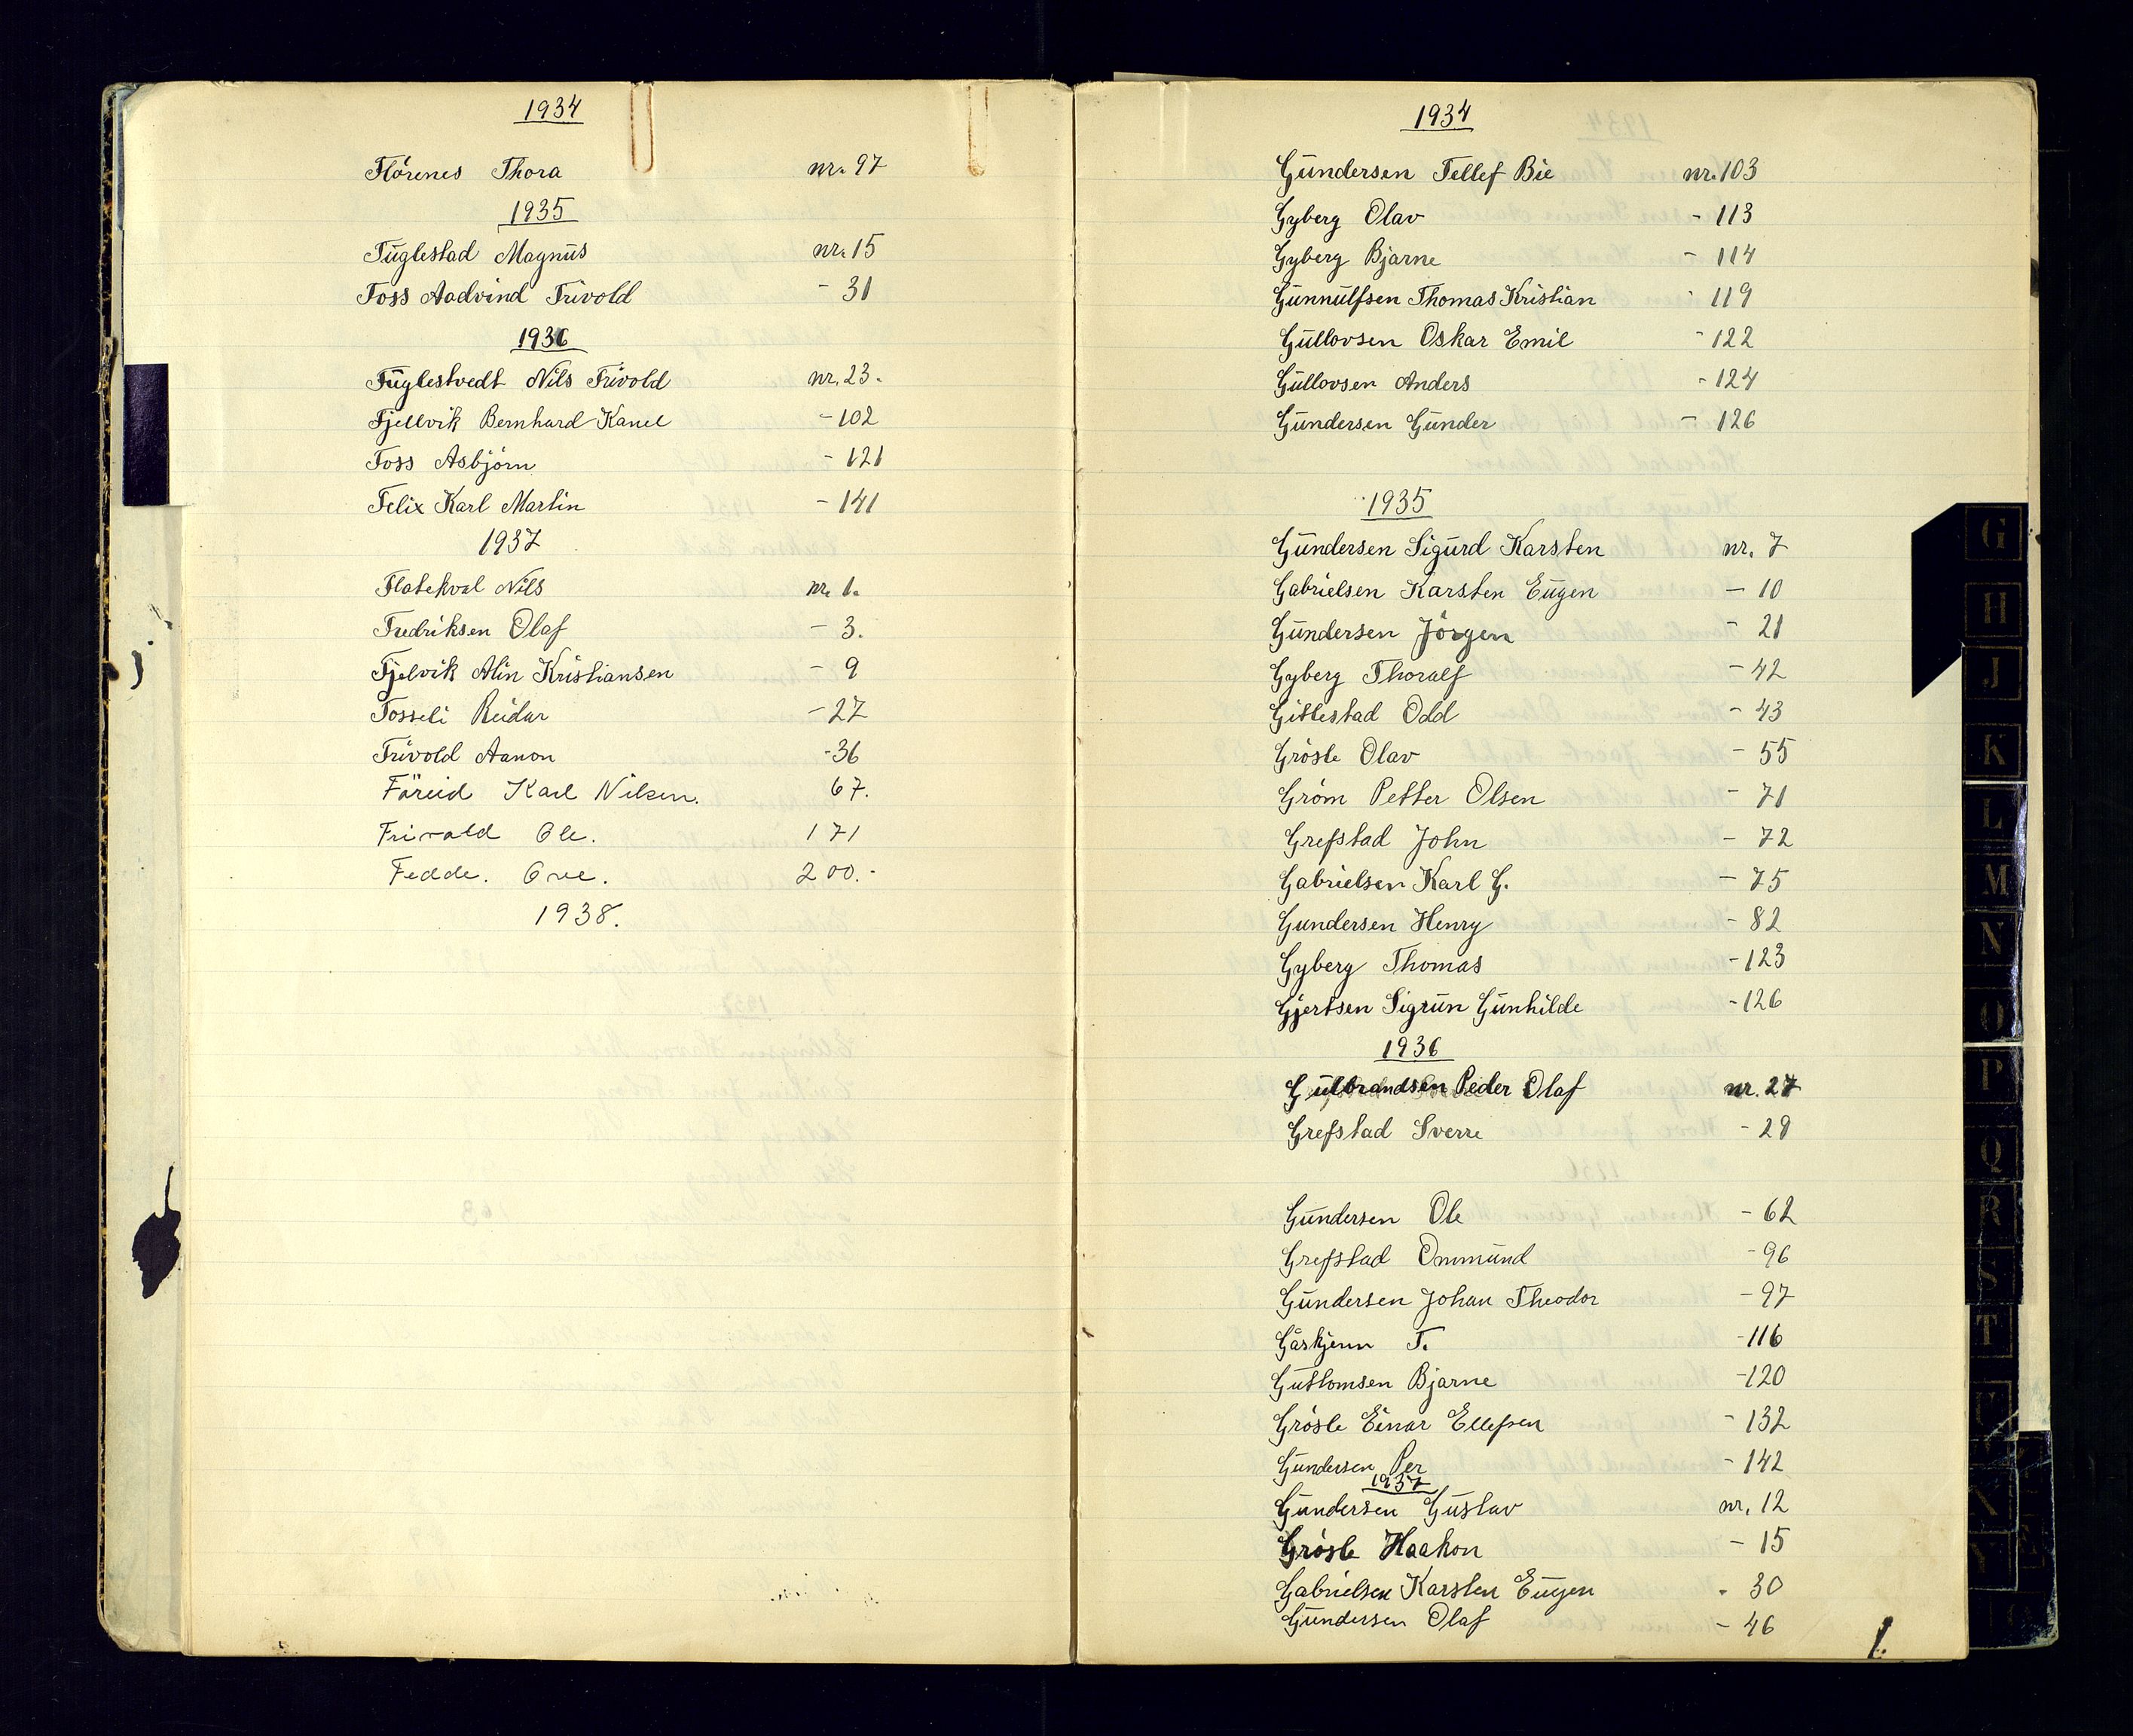 1934
Flörenes Thora nr. 97
1935
Fuglestad Magnus nr. 15
Foss Aadvind Frivold - 31
1936
Fuglestvedt Nils Frivold nr. 23.
Fjellvik Bernhard Kanel - 102
Foss Asbjörn - 121
Felix Karl Martin - 141
1937
Flatekval Nils nr. 1.
Fredriksen Olaf - 3.
Fjelvik Alin Kristiansen - 9
Fosseli Reidar - 27
Frivold Aanon - 36
Färeid Karl Nilsen. 67.
Frivold Ole. 171
Fedde. Ove. 200.-
1938.
1934
Gundersen Tellef Bie nr. 103
Gyberg Olav - 113
Gyberg Bjarne - 114
Gunnulfsen Thomas Kristian - 119
Gullovsen Oskar Emil - 122
Gullovsen Anders - 124
Gundersen Gunder - 126
1935
Gundersen Sigurd Karsten nr. 7
Gabrielsen Karsten Eugen - 10
Gundersen Jörgen - 21
Gyberg Thoralf - 42
Gitlestad Odd - 43
Grösle Olav - 55
Gröm Petter Olsen - 71
Grefstad John - 72
Gabrielsen Karl G. - 75
Gundersen Henry - 82
Gyberg Thomas - 123
Gjertsen Sigrun Gunhilde - 126
1936
Gulbrandsen Peder Olaf nr. 27
Grefstad Sverre - 28
Gundersen Ole - 62
Grefstad Ommund - 96
Gundersen Johan Theodor - 97
Gåskjenn T. - 116
Guttomsen Bjarne - 120
Grösle Einar Ellefsen - 132
Gundersen Per - 142
1937
Gundersen Gustav nr. 12
Grösle Haakon - 15
Gabrielsen Karsten Eugen - 30
Gundersen Olaf - 46
1.
G
H
J
K
L
M
N
O
P
Q
R
S
T